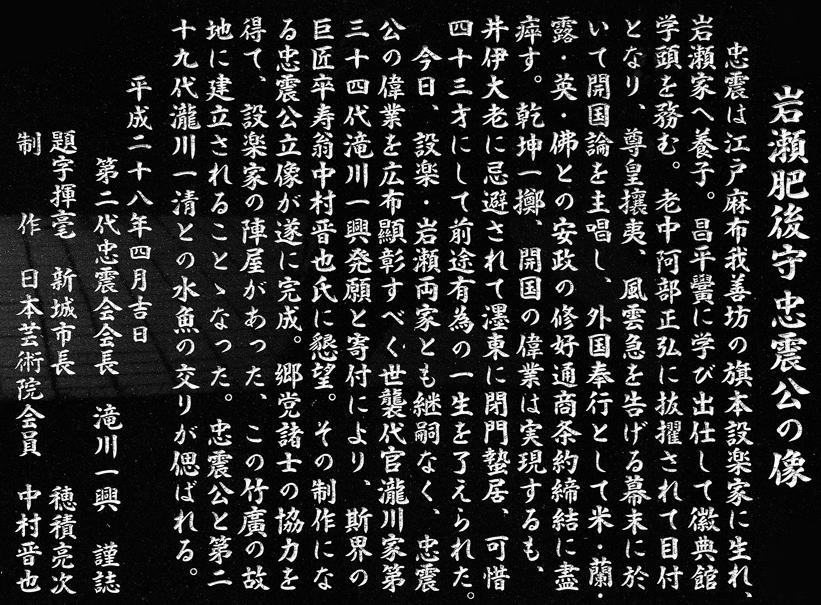 岩瀬肥後守忠震公の像
忠震は江戸麻布我善坊の旗本設楽家に生れ、
岩瀬家へ養子。昌平黌に学び出仕して徽典館
学頭を務む。老中阿部正弘に抜擢されて目付
となり、尊皇攘夷、風雲急を告げる幕末に於
いて開国論を主唱し、外国奉行として米・蘭・
露・英・佛との安政の修好通商条約締結に盡
瘁す。乾坤一擲、開国の偉業は実現するも、
井伊大老に忌避されて濹東に閉門蟄居、可惜
四十三才にして前途有為の一生を了えられた。
今日、設楽・岩瀬両家とも継嗣なく、忠震
公の偉業を広布顯彰すべく世襲代官瀧川家第
三十四代滝川一興発願と寄付により、斯界の
巨匠卒寿翁中村晋也氏に懇望。その制作にな
る忠震公立像が遂に完成。郷党諸士の協力を
得て、設楽家の陣屋があった、この竹廣の故
地に建立されることゝなった。忠震公と第二
十九代瀧川一清との水魚の交りが偲ばれる。
平成二十八年四月吉日
第二代忠震会会長 滝川一興 謹誌
題字揮毫 新城市長 穂積亮次
制作 日本芸術院会員 中村晋也